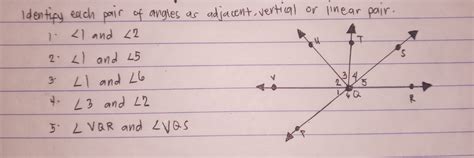 Identify each pair of angles as adjacent, vertical or linear pair.
1. ∠1 and ∠2
2. ∠1 and ∠5
3. ∠1 and ∠6
4. ∠3 and ∠2
5. ∠VQR and ∠VQS
U
T
S
V
3 4
2 5
1 6 Q
R
P